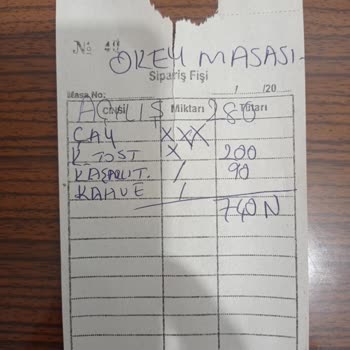 No 49
OKEY MASASI
Sipariş Fişi
Masa No: / /20
Cinsi Miktarı Tutarı
AÇILIŞ 280
ÇAY XXX
K. TOST X 200
KAŞARLI T. / 90
KAHVE /
740 N